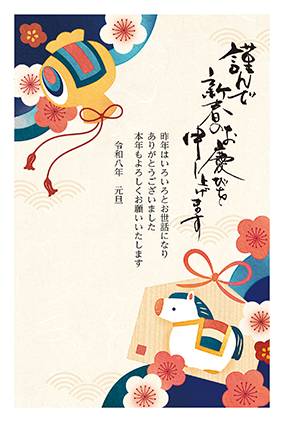 謹んで
新春のお慶びを
申し上げます
昨年はいろいろとお世話になり
ありがとうございました
本年もよろしくお願いいたします
令和八年　元旦